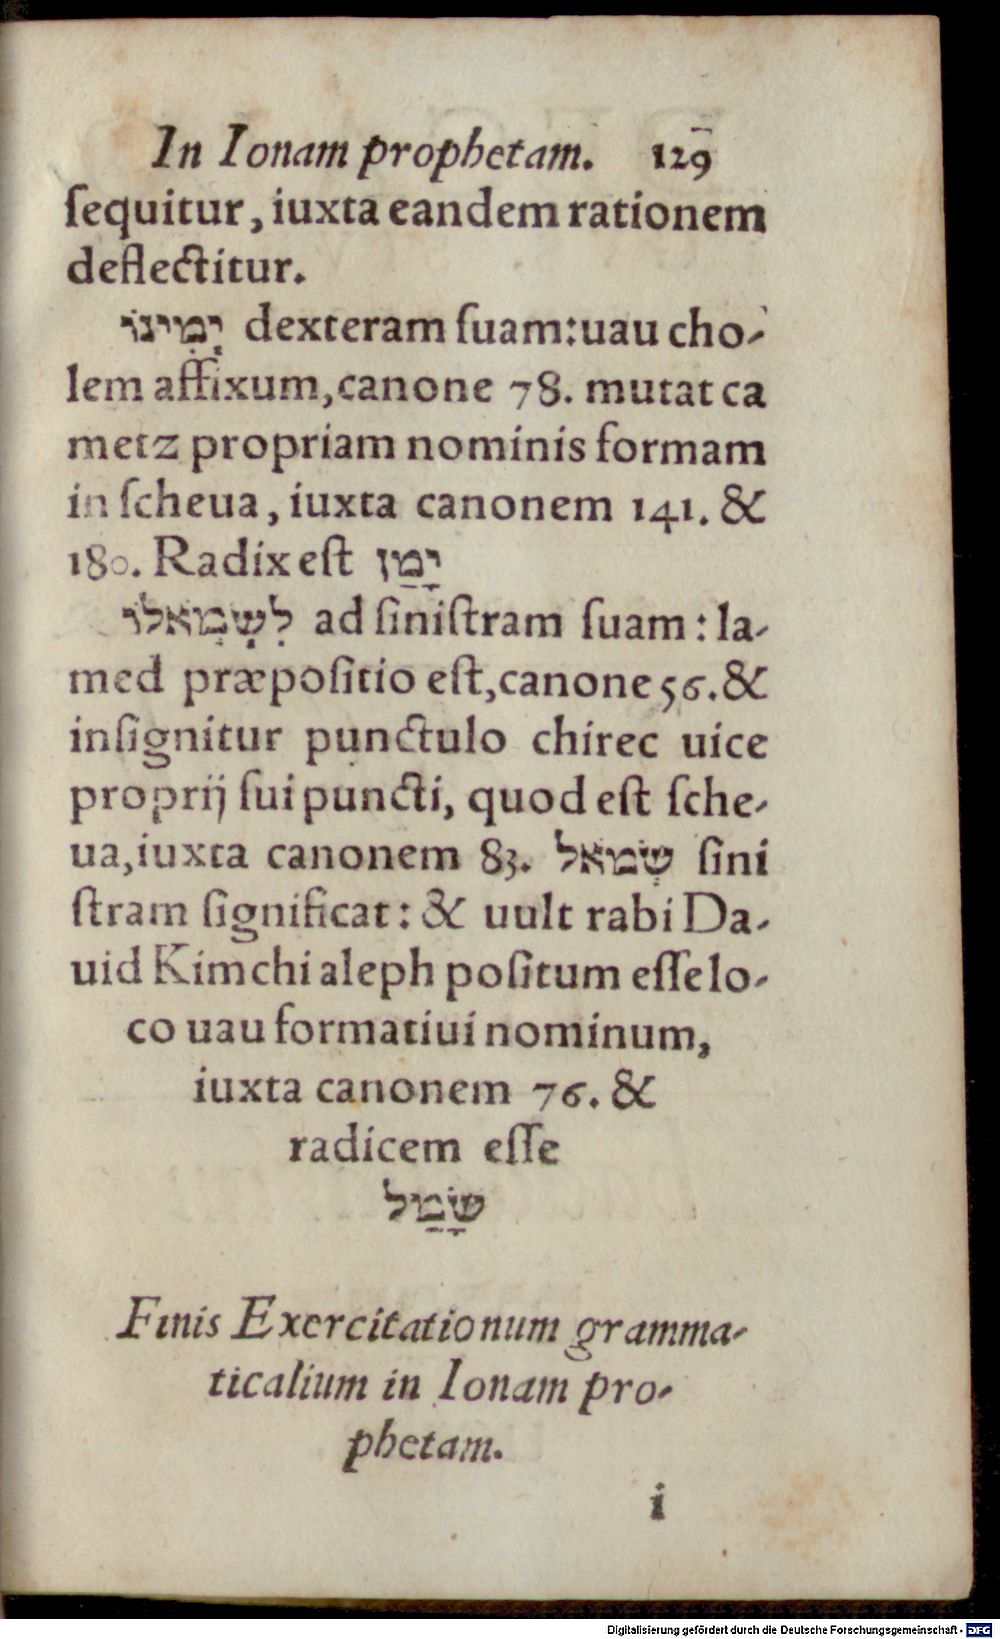 In Ionam prophetam. 129
ſequitur, iuxta eandem rationem
deflectitur.
יְמִינוֹ dexteram ſuam: uau cho-
lem affixum, canone 78. mutat ca
metz propriam nominis formam
in ſcheua, iuxta canonem 141. &
180. Radix eſt יָמַן
לִשְׂמֹאלוֹ ad ſiniſtram ſuam: la-
med præpoſitio eſt, canone 56. &
inſignitur punctulo chirec uice
proprij ſui puncti, quod eſt ſche-
ua, iuxta canonem 83. שְׂמֹאל ſini
ſtram ſignificat: & uult rabi Da-
uid Kimchi aleph poſitum eſſe lo-
co uau formatiui nominum,
iuxta canonem 76. &
radicem eſſe
שָׂמַל
Finis Exercitationum gramma-
ticalium in Ionam pro-
phetam.
i
Digitalisierung gefördert durch die Deutsche Forschungsgemeinschaft - DFG